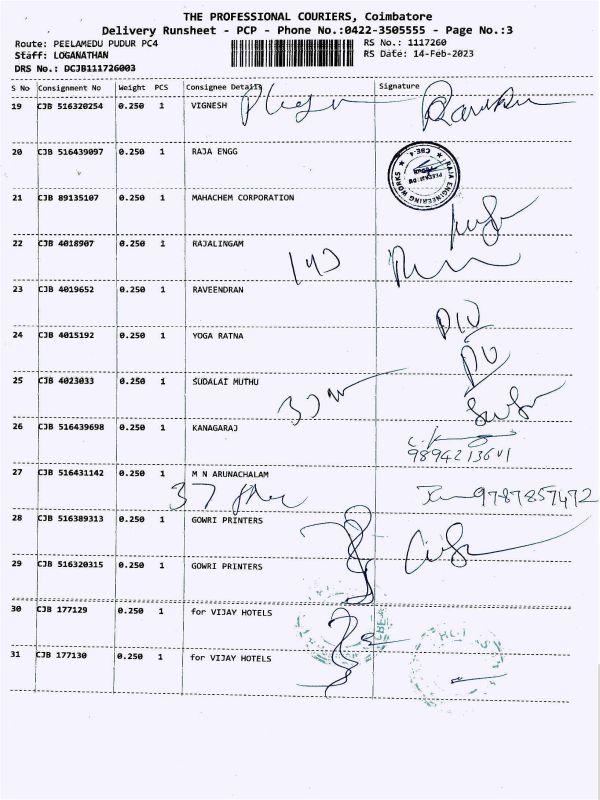 THE PROFESSIONAL COURIERS, Coimbatore
Delivery Runsheet - PCP - Phone No.:0422-3505555 - Page No.:3
Route: PEELAMEDU PUDUR PC4 RS No.: 1117260
Staff: LOGANATHAN RS Date: 14-Feb-2023
DRS No.: DCJB111726003
S No Consignment No Weight PCS Consignee Details Signature
19 CJB 516320254 0.250 1 VIGNESH
20 CJB 516439097 0.250 1 RAJA ENGG
RAJA ENGINEERING WORKS
CBE-4
21 CJB 89135107 0.250 1 MAHACHEM CORPORATION
22 CJB 4018907 0.250 1 RAJALINGAM
23 CJB 4019652 0.250 1 RAVEENDRAN
24 CJB 4015192 0.250 1 YOGA RATNA
25 CJB 4023033 0.250 1 SUDALAI MUTHU
26 CJB 516439698 0.250 1 KANAGARAJ
27 CJB 516431142 0.250 1 M N ARUNACHALAM
37 9787857472
28 CJB 516389313 0.250 1 GOWRI PRINTERS
29 CJB 516320315 0.250 1 GOWRI PRINTERS
30 CJB 177129 0.250 1 for VIJAY HOTELS
31 CJB 177130 0.250 1 for VIJAY HOTELS